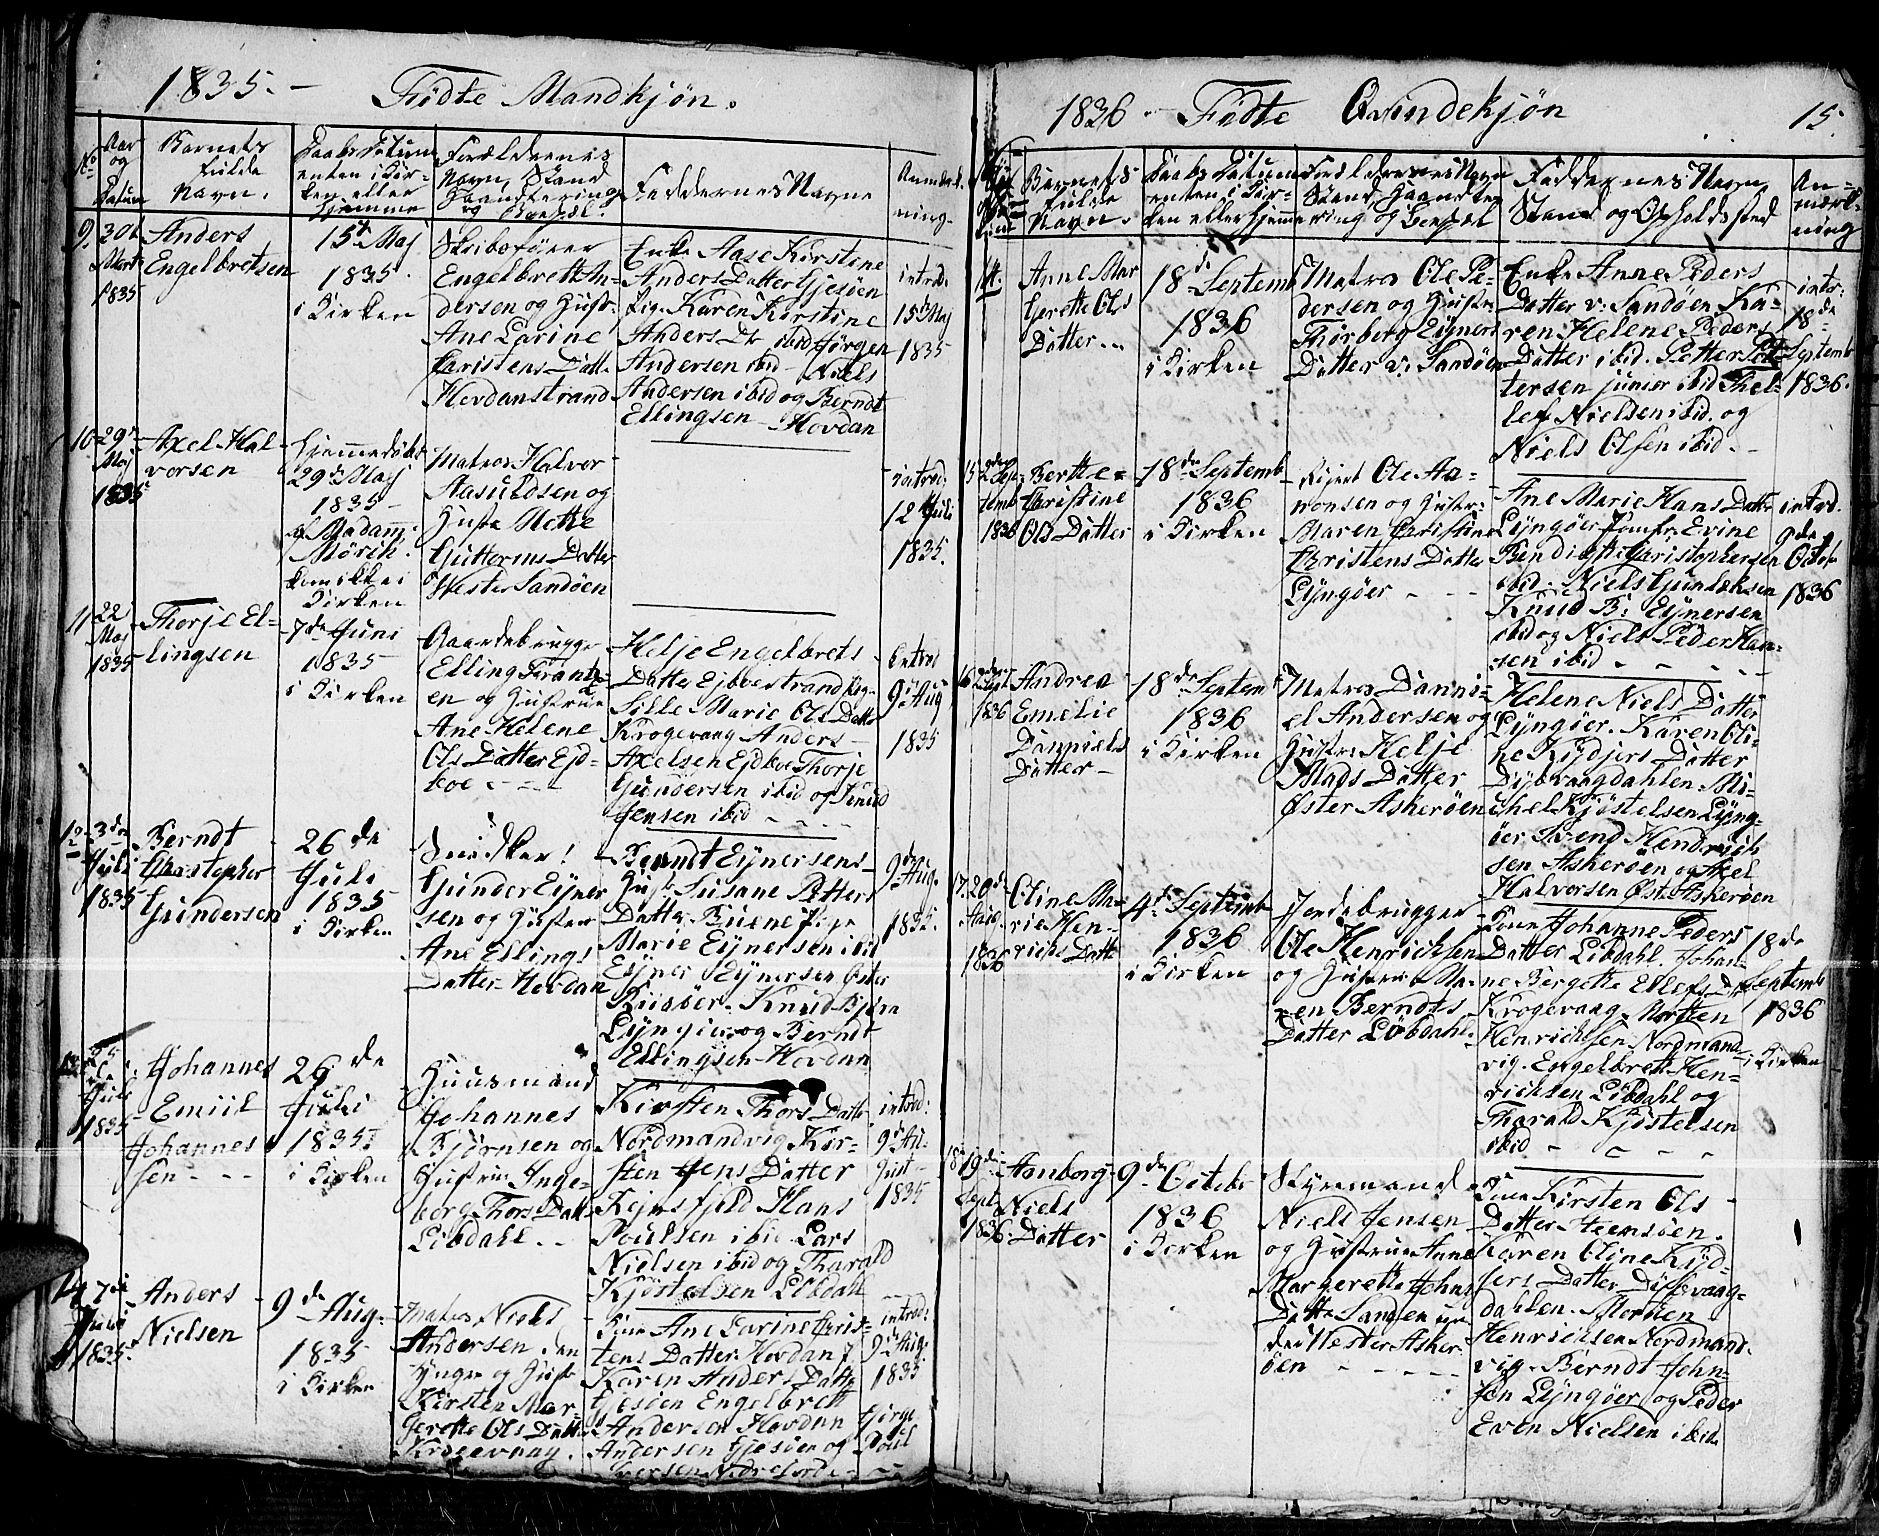 1835. - Fødte Mandkjøn.
No
Aar og Datum
Barnets fulde Navn.
Daabs Datum enten i Kirken eller Hjemme
Forældrenes Navn, Stand Haandtering og Bopæl.
Faddernes Navne
Anmærkning.
9.
30t
Marts
1835
Anders
Engelbretsen
15d Maj
1835.
i Kirken
Skibsfører
Engelbrett An-
dersen og Hustr.
Ane Larine
Christens Datt.
Hovdanstrand
Enke Aase Kirstine
Anders Datter Gjesøen
Pig. Karen Kirstine
Anders Dr ibid Jørgen
Andersen ibid - Niels
Andersen ibid og Berndt
Ellingsen - Hovdan
introd:
15d Maj
1835
10
29d
Maj
1835
Axel Hal-
vorsen
Hjemmedøbt
29d Maj
1835 -
af Madam
Mörik.
kom ikke i
Kirken
Matros Halvor
Aasuldsen og
Hustr Mette
Guttorms Datter
Vester Sandøen
introd:
12 Juli
1835.
11
22
Maj
1835
Thorje El-
lingsen
7de Juni
1835
i Kirken
Gaardebrugger
Elling Frantz-
en og Hustrue
Ane Helene
Ols Datter Ejd-
boe - - -
Helje Engelbrets
Datter Ejdboestrand Pig.
Sille Marie Ols Datter
Krogevaag Anders
Axelsen Ejdboe Thorje
Gundersen ibid og Knud
Jensen ibid - - -
Introd
9d Aug
1835
12
3de
Juli
1835
Berndt
Christopher
Gundersen
26de
Juli
1835
i Kirken
Snedker
Gunder Ejner
sen og Hustru
Ane Ellings
Datter Hovdan
Berndt Ejnersens
Hustr Susane Petters
Datter Buene Pige
Marie Ejnersen ibid
Ejner Ejnersen Øster
Riisøer. Knud Bjørn
Lyngøer og Berndt
Ellingsen Hovdan
9d Aug.
1835.
13
Juli
1835
Johannes
Emiil
Johannes
sen - - -
26de
Juli
1835
i Kirken
Huusmand
Johannes
Bjørnsen og
Hustrue Inge-
borg Thors Datt.
Libdahl. -
Kirsten Thors Datter
Nordmandvig Kir-
sten Jens Datter
Rejnsfjeld Hans
Poulsen ibid Lars
Nielsen ibid og Tharald
Kjøstelsen Libdahl
introd:
9d Au-
gust
1835
14
7de
Juli
1835.
Anders
Nielsen
9de Aug.
1835
i Kirken
Matros Niels
Andersen den
yngre og Hustr
Kirsten Mar-
grethe Ols Datter
Krogevaag.
Kone Ane Larine Chris-
tens Datter Hovdan
Karen Anders Datter
Gjesøen Engelbrett
Andersen Hovdan Jørge
Andersen Gjesøen og Poul
Iversen Nedrefjord - -
introd:
9d Aug.
1835
1836 - Fødte Qvindekjøn
15.
Barnets fulde Navn.
Daabs Datum enten i Kirken eller Hjemme
Forældrenes Navn Stand, Haandtering og Bopæl
Faddernes Navn Stand og Opholdsted
Anmærkning
14.
Anne Mar
grethe Ols
Datter -
18de Septemb
1836
i Kirken
Matros Ole Pe-
dersen og Hustr.
Thorborg Ejners
Datter V: Sandøen
Enke Anne Peders
Datter v: Sandøen Ka-
ren Helene Peders
Datter ibid. Petter Pet-
tersen junior ibid Thel-
lef Nielsen ibid. og
Niels Olsen ibid. -
intr:
18de
Septemb
1836.
15
Septemb
1836
Berthe
Christine
Ols Datter
18de Septemb
1836
i Kirken
Rejert Ole Aa-
nonsen og Hustr.
Maren Christine
Christens Datter
Lyngøer - - -
Ane Marie Hans Datter
Lyngøer Jomfr. Evine
Bendigte Christophersen
ibid. Niels Gundersen
Knud B: Ejnersen
ibid og Niels Peder Han-
sen ibid - - - -
introd.
9de
Octob
1836
16
Sept
1836
Andrea
Emelie
Danniels
Datter -
18de Septemb
1836
i Kirken
Matros Danni-
el Andersen og
Hustr. Helje
Mads Datter
Øster Askerøen
Helene Niels Datter
Lyngøer. Karen Oli-
ne Kydjers Datter
Dybvaagdahlen. Mi-
chel Kjøstelsen Lyng-
øer Svend Hendrich
sen Askerøen og Axel
Halvorsen Øst. Askerøen
17.
29de
Aug.
1836
Oline Ma-
rie Hen-
richs Datter
4de Septemb
1836
i Kirken
Jordebrugger
Ole Henrichsen
og Hustrue Ma-
ren Berndts
Datter Libdahl
Kone Johanne Peders
Datter Libdahl. Johan-
ne Bergette Ellefs Dr
Krogevaag. Morten
Henrichsen Nordmand-
vig. Engelbrett Hen-
richsen Libdahl og
Tharald Kjøstelsen
ibid - - - -
18de
Septemb
1836
i Kirken
18
19de
Sept
1836.
Annborg
Niels
Datter
9de Octobr
1836
i Kirken
Styrmand
Niels Jensen
og Hustrue Anne
Margrethe Johns
Datter Sandsen un-
der Vester Asker-
øen - - - -
Kone Kirsten Ols
Datter Steensøen.
Karen Oline Kyd-
jers Datter Dybvaag-
dahlen. Morten
Henrichsen Nordmand-
vig. Berndt John-
sen Lyngøer og Peder
Even Nielsen ibid.